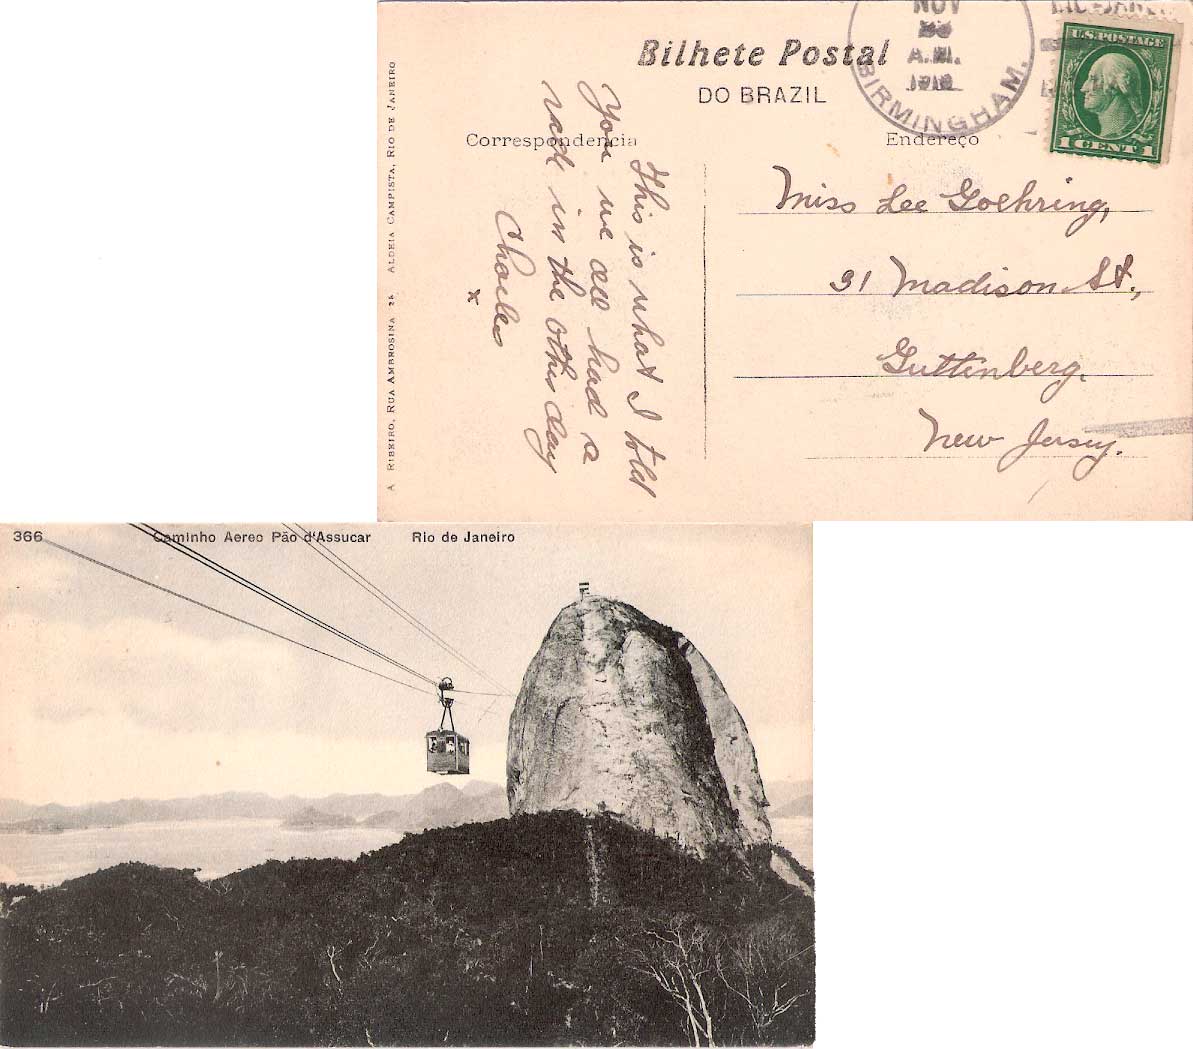 Bilhete Postal
DO BRAZIL
Correspondencia
Endereço
NOV
A.M.
BIRMINGHAM.
RIO-JANEI
U.S. POSTAGE
1 CENT 1
This is what I told
You we all had a
ride in the other day
Charles
x
Miss Lee Goehring,
31 Madison St.,
Guttenberg.
New Jersey.
A RIBEIRO, RUA AMBROSINA 25 ALDEIA CAMPISTA, RIO DE JANEIRO
366 Caminho Aereo Pão d'Assucar Rio de Janeiro